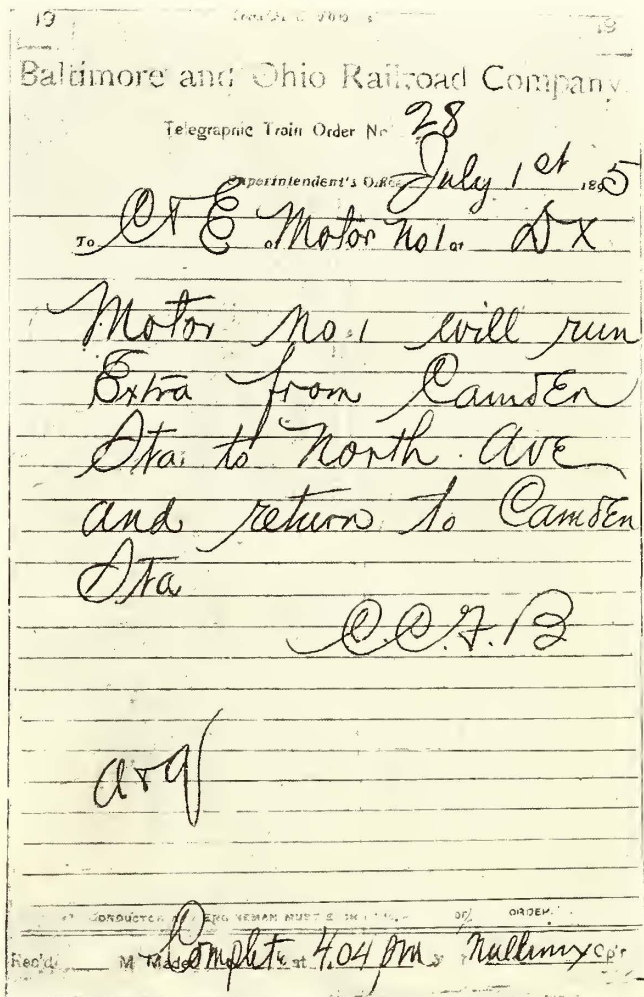 19 19
Baltimore and Ohio Railroad Company.
Telegraphic Train Order No 28
Superintendent's Office July 1st 1895
To C & E o Motor No 1 at DX
Motor No. 1 will run
Extra from Camden
Sta. to North Ave
and return to Camden
Sta
C.C.F.B
CONDUCTOR MUST ORDER.
Rec'd M Made Complete at 4.04 pm Op'r